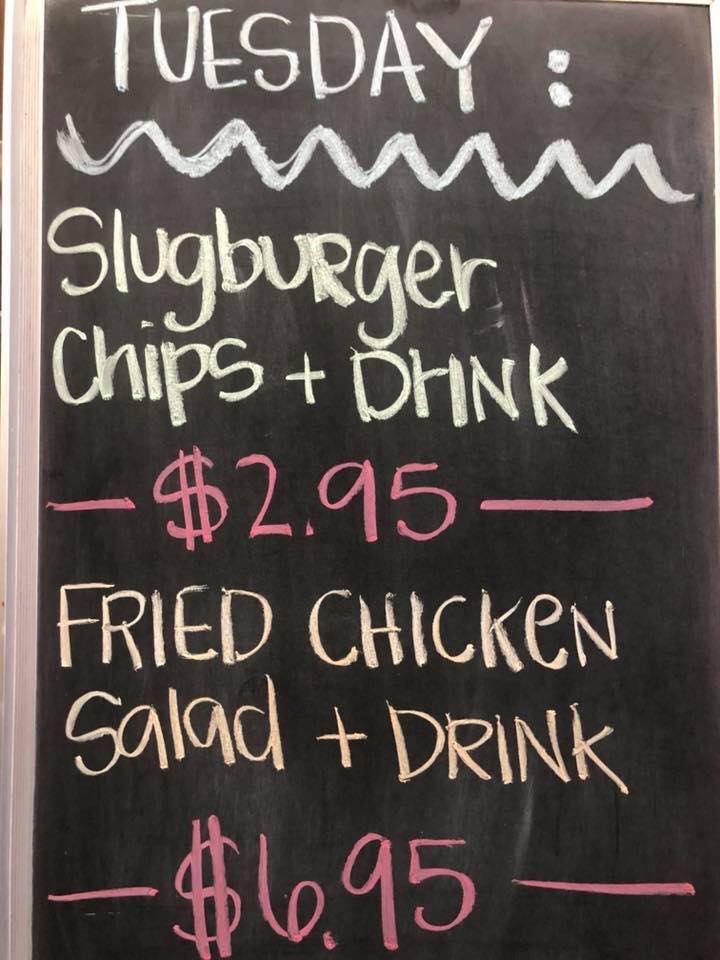 TUESDAY:
SlugbuRger
Chips + DrINK
- $2.95 -
FRIED CHICKeN
Salad + DRINK
- $6.95 -